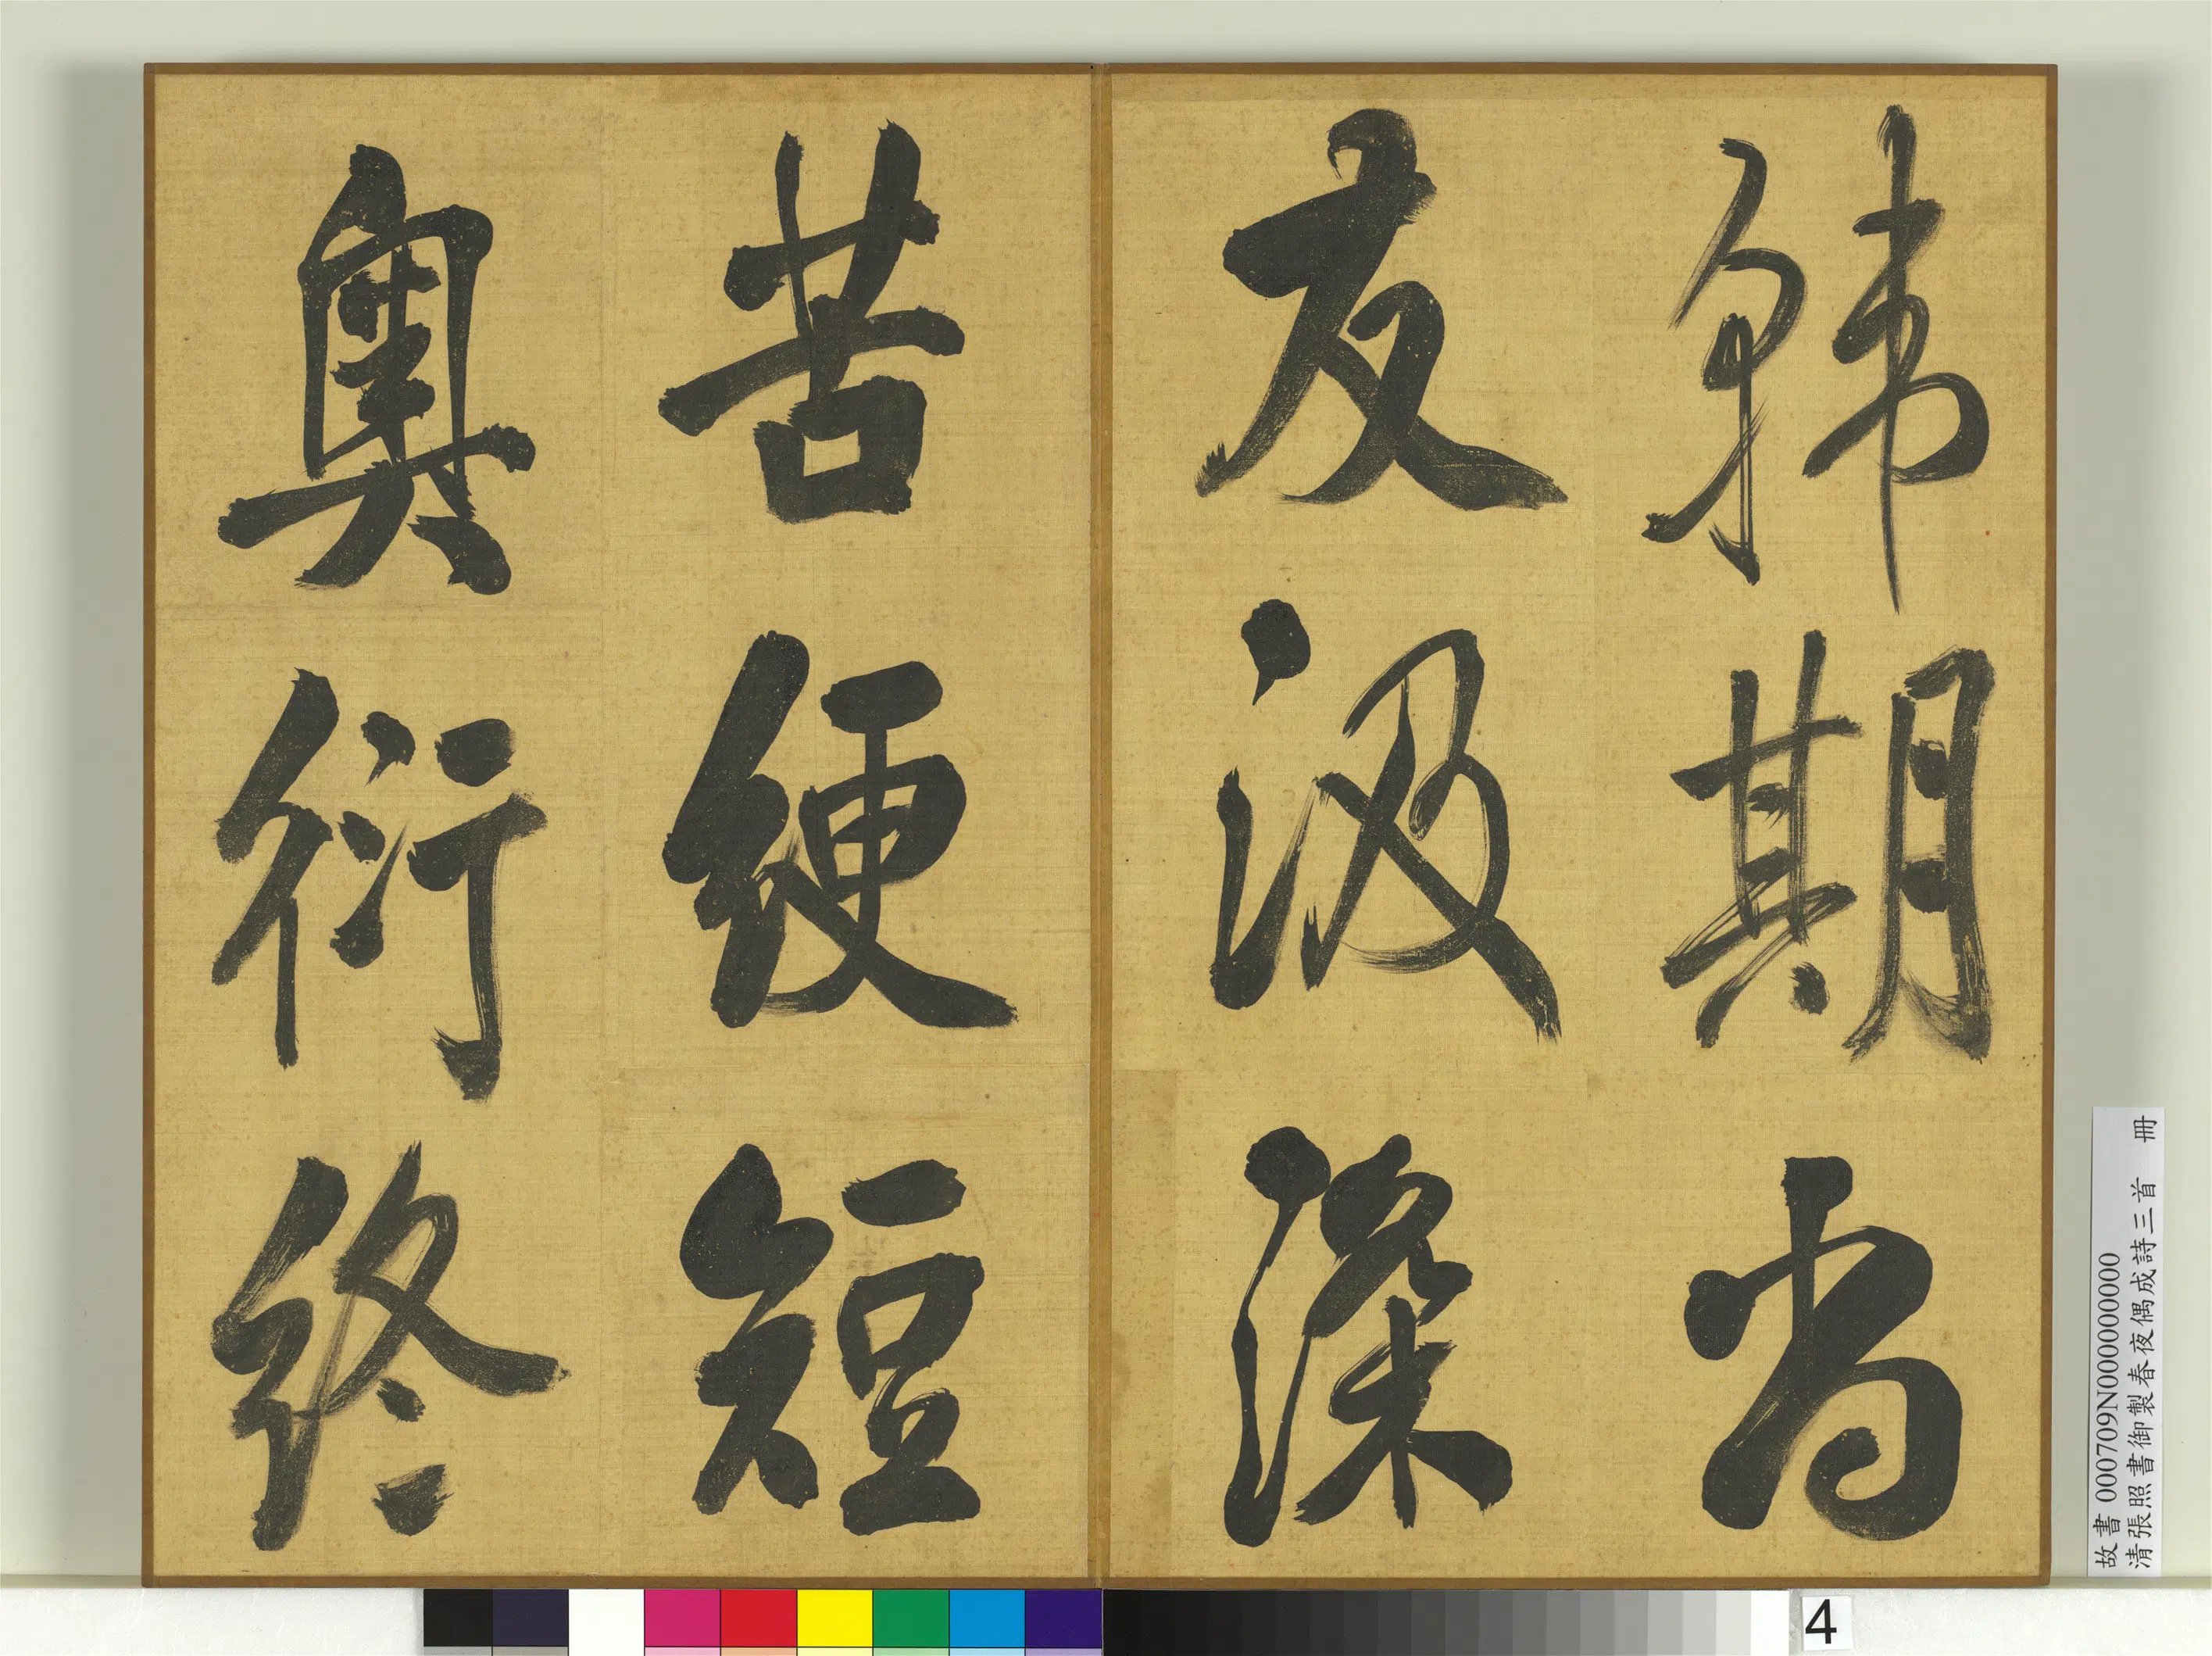 韓期尚
友汲深
苦綆短
奥衍終
故書 000709N000000000
清張照書御製春夜偶成詩三首 冊
4